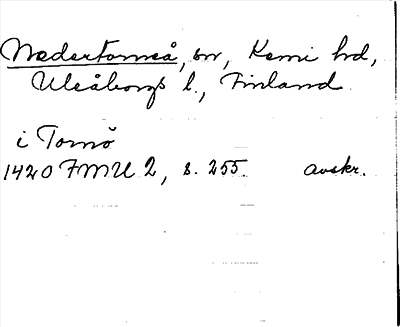 Nedertorneå, sn, Kemi hd,
Uleåborgs l., Finland
i Tornö
1420 FMU 2, s. 255. avskr.